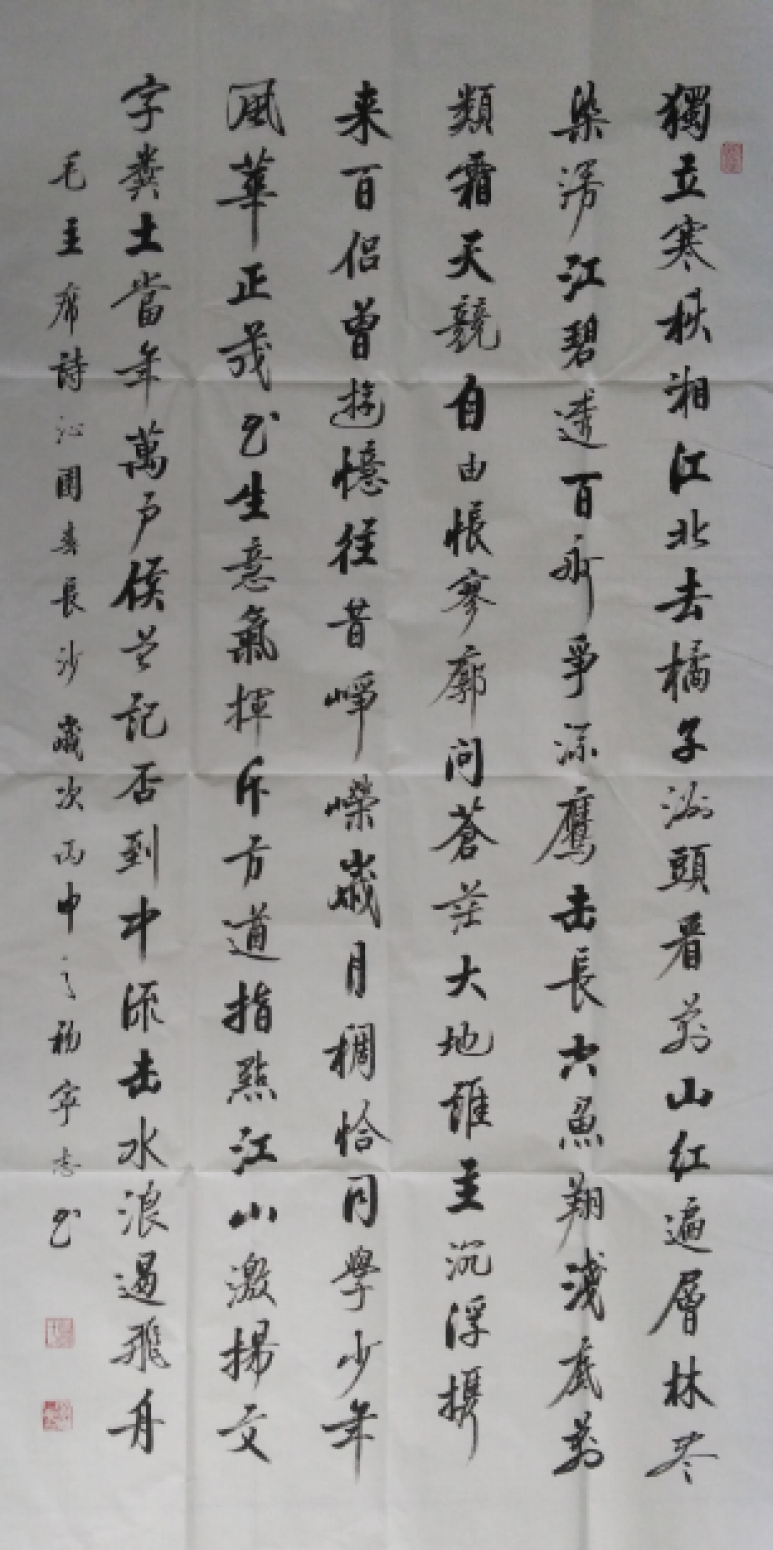 獨立寒秋湘江北去橘子洲頭看萬山紅遍層林尽
染漫江碧透百舸爭流鷹击長空魚翔淺底萬
類霜天競自由悵寥廓问蒼茫大地誰主沉浮携
来百侣曾遊憶往昔崢嶸歲月稠恰同學少年
風華正茂书生意氣揮斥方遒指點江山激揚文
字糞土當年萬户侯曾记否到中流击水浪遏飛舟
毛主席詩沁園春長沙歲次丙申之 志书